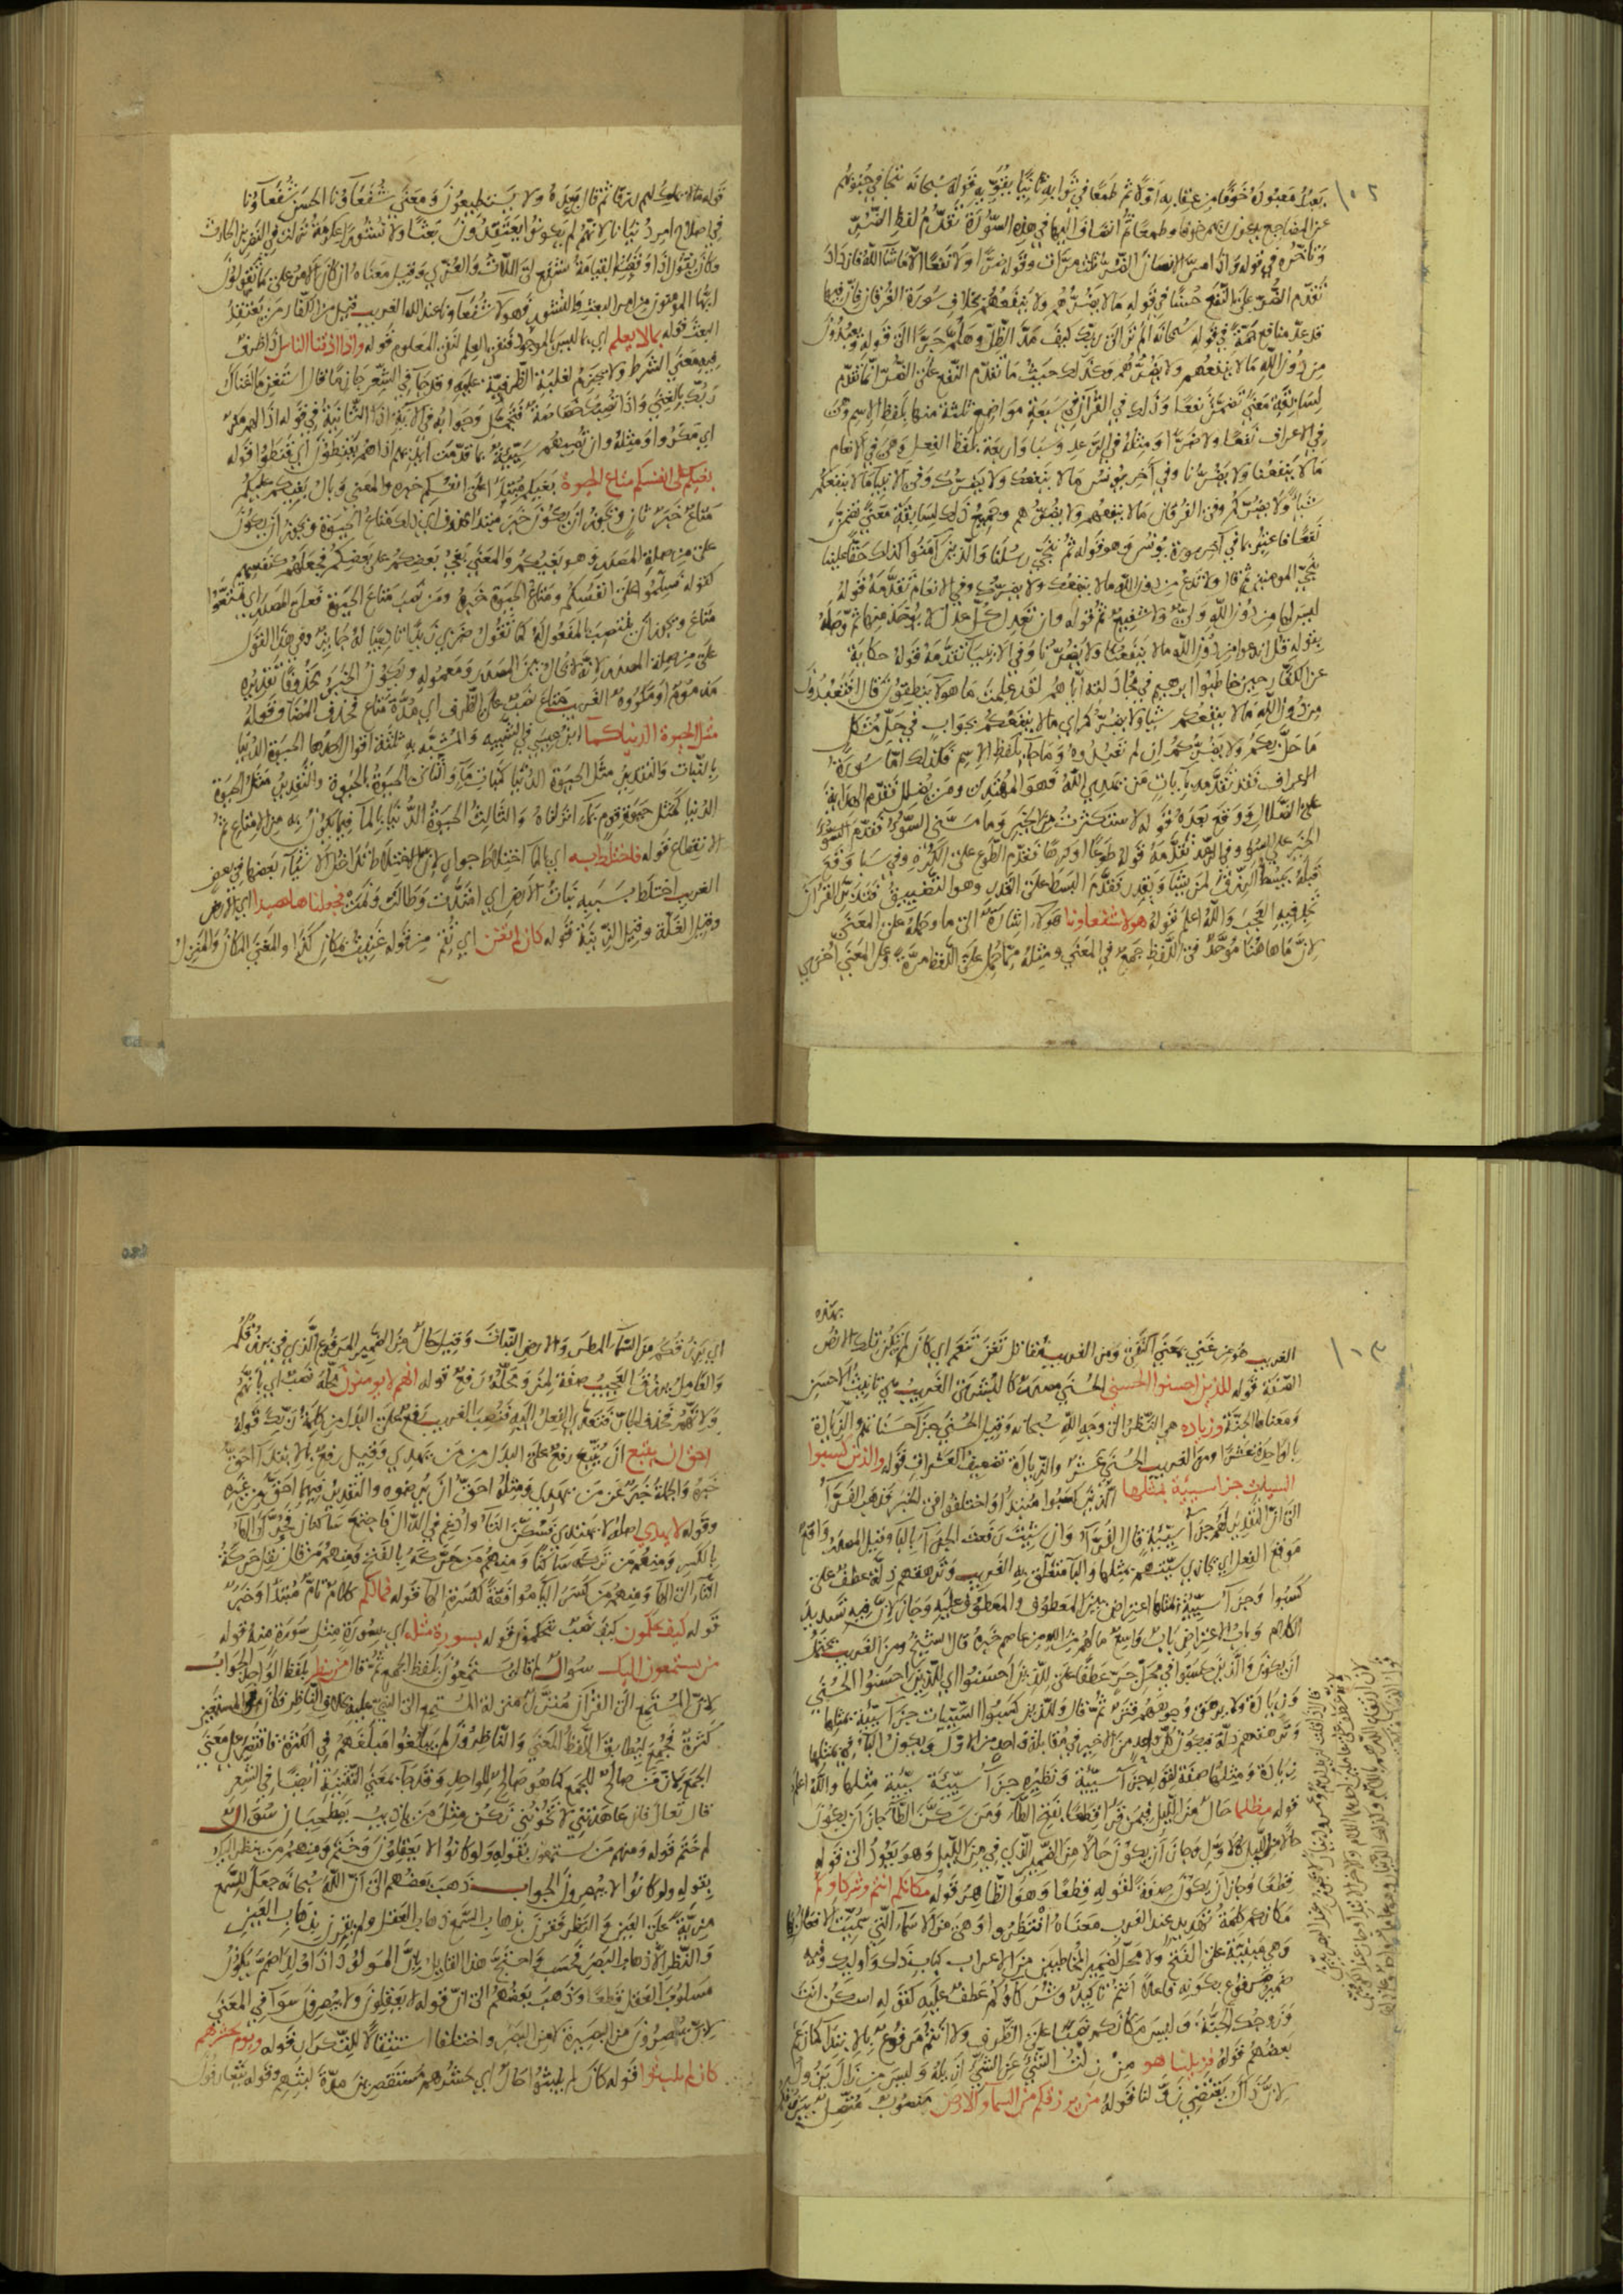 ١٠٢
يعبدُ معبودَهُ خوفًا من عقابه أوّلًا ثم طمعًا في ثوابه ثانيًا يقوّيه قوله سبحانه تتجافى جنوبهم
عن المضاجع يدعون ربهم خوفا وطمعا ثم انضاف اليها في هذه السورة تقدّم لفظ الضرّ
وتأخره في قوله واذا مسّ الانسان الضرّ ثلث مرّات وقوله ضرًّا ولا نفعًا الا ما شاء الله فازداد
تقدّم الضرّ على النفع حسنًا في قوله ما لا يضرّهم ولا ينفعهم بخلاف سورة الفرقان فانّ فيها
قد عدّ منافع جمّة في قوله سبحانه الم تر الى ربك كيف مدّ الظلّ وهلمّ جرّا الى قوله ويعبدون
من دون الله ما لا ينفعهم ولا يضرّهم وكذلك حيث ما تقدّم النفع على الضرّ انما تقدّم
لسابقة معنى تضمّن نفعا وذلك في القرآن في سبعة مواضع ثلثة منها بلفظ الاسم وهى
في الاعراف نفعا ولا ضرّا ومثله في الرعد وسبا واربعة بلفظ الفعل وهى في الانعام
ما لا ينفعنا ولا يضرّنا وفي آخر يونس ما لا ينفعك ولا يضرّك وفى الانبيا ما لا ينفعكم
شيأ ولا يضرّكم وفى الفرقان ما لا ينفعهم ولا يضرّهم وجميع ذلك لسابقة معنى تضمن
نفعا فاعتبر بما في آخر سورة يونس وهو قوله ثم ننجّي رسلنا والذين آمنوا كذلك حقا علينا
ننجي المومنين ثم قال ولا تدع من دون الله ما لا ينفعك ولا يضرّك وفي الانعام تقدّمه قوله
ليس لها من دون الله وليّ ولا شفيع ثم قوله وان تعدل كلّ عدل لا يؤخذ منها ثم وصله
بقوله قل اندعوا من دون الله ما لا ينفعنا ولا يضرّنا وفي الانبيا تقدّمه قوله حكاية
عن الكفّار حين خاطبوا ابرهيم في مجادلته اياهم لقد علمت ما هولا ينطقون قال افتعبدون
من دون الله ما لا ينفعكم شيأ ولا يضرّكم اي ما لا ينفعكم بجواب في حلّ مشكل
ما حلّ بكم ولا يضرّكم ان لم تعبدوه وما جا بلفظ الاسم فكذلك امّا سورة
الاعراف فقد تقدّمه بآيات من يهدي الله فهو المهتدى ومن يضلل فقدّم الهداية
على الضلال ووقع بعده قوله لاستكثرت من الخير وما مسّني السوء فقدّم
الخير على السوء وفى الرعد تقدّمه قوله طوعا وكرها فقدّم الطوع على الكره وفي سبا وقع
قبله يبسط الرزق لمن يشا ويقدر فقدّم البسط على القدر وهو التضييق فتدبّر القرآن
تجد فيه العجب والله اعلم قوله هولا شفعاونا هولاء اشارة الى ما وحمله على المعنى
لانّ ما هاهنا موحّد في اللفظ جمع في المعنى ومثله مما حُمل على اللفظ مرّة وعلى المعنى اخرى
قوله ما لا يملك لهم رزقا ثم قال بعده ولا يستطيعون ومعنى شفعاونا الحسن شفعاونا
في اصلاح امر دنيانا لانهم لم يكونوا يعتقدون بعثا ولا نشورا عكرمة نزلت في النضر بن الحارث
وكان يقول اذا كان يوم القيامة شفع لي اللات والعزى وقيل معناه ان كان الامر على ما تقولون
ايها المومنون من امر البعث والنشور فهولا شفعاونا عند الله الغريب قيل من الكفّار من يعتقد
البعث قوله بما لا يعلم اي بما ليس بالموجود فنفى العلم لنفى المعلوم قوله واذا اذقنا الناس اذا ظرف
فيه معنى الشرط ولا يجزم لغلبة الظرفيّة عليه وقد جا في الشعر جازما قال استغن ما اغناك
ربك بالغنى واذا تصبك خصاصة فتجمّل وجوابه في الآية اذا الثانية في قوله اذا لهم مكر
اي مكروا ومثله وان تصبهم سيّئة بما قدّمت ايديهم اذا هم يقنطون اي قنطوا قوله
بغيكم على انفسكم متاع الحيوة بغيكم مبتدا على انفسكم خبره والمعنى وبال بغيكم عليكم
متاع خبر ثان ويجوز ان يكون خبر مبتدا محذوف اي ذلك متاع الحيوة ويجوز ان يكون
على من صلة المصدر وهو بغيكم والمعنى بغي بعضكم على بعض فجعلهم كنفسهم
كقوله فسلّموا على انفسكم ومتاع الحيوة خبره ومن نصب متاع الحيوة فعلى المصدر اي تمتّعوا
متاع ويجوز ان ينتصب بالمفعول له كما تقول ضربي زيدًا تاديبًا له جايز وفي هذا القول
على من صلة المصدر لانه لا يحال بين المصدر ومعموله ويكون الخبر محذوفا تقديره
مذموم او مكروه الغريب متاع نصب على الظرف اي مدّة متاع فحذف المضاف قوله
مثل الحيوة الدنيا كمآء ابن عيسى في التشبيه والمشبّه به ثلثة اقوال احدها الحيوة الدنيا
بالنبات والتقدير مثل الحيوة الدنيا كنبات ماء والثاني الحيوة بالحيوة والتقدير مثل الحيوة
الدنيا كمثل حيوة قوم بماء انزلناه والثالث الحيوة الدنيا بالمآ فيما يكون به من الامتاع ثم
الانقطاع قوله فاختلط به اي بالما اختلاط جوار لان الاختلاط تداخل الاشيآء بعضها في بعض
الغريب اختلط بسببه نبات الارض اي امتدّت وطالت ونمت فجعلناها حصيدا اي الارض
وقيل الغلّة وقيل الزينة قوله كان لم تغن اي تقم من قوله غنيت بمكان كذا والمغنى المكان والمنزل
١٠٣
الغريب هو من غني بمعنى اكتفى ومن الغريب مقاتل تغن تنعم اي كان لم تكن تلك الارض
بهذه
الصفة قوله للذين احسنوا الحسنى الحسنى مصدر كالبشرى الغريب هي تانيث الاحسن
ومعناها الجنّة وزياده هي النظر الى وجه الله سبحانه وقيل الحسنى جزآ حسناتهم والزيادة
بالواحدة عشرًا ومن الغريب الحسنى عشر والزيادة تضعيف العشر الى قوله والذين كسبوا
السيئات جزاء سيئة بمثلها الذين كسبوا مبتدا واختلفوا في الخبر فذهب الفرّاء
الى انّ التقدير لهم جزآ سيئة قال الفرّآ وان شئت رفعت الجزآ بالبا وقيل المصدر واقع
موقع الفعل اي نجازي سيّئتهم بمثلها والبا متعلّق به الغريب وترهقهم ذلّة عطف على
كسبوا وجزآ سيّئة بمثلها اعتراض بين المعطوف والمعطوف عليه وجاز لانّ فيه تسديد
الكلام وباب الاعتراض باب واسع ما لهم من الله من عاصم خبره قال الشيخ ومن الغريب يحتمل
ان يكون والذين كسبوا في محلّ جرّ عطفا على للذين احسنوا اي للذين احسنوا الحسنى
وزيادة ولا يرهق وجوههم قتر ثم قال وللذين كسبوا السيّئات جزآء سيئة بمثلها
وترهقهم ذلّة فيكون كلّ واحد من الاخير في مقابلة واحد من الاول ويجوز البا في بمثلها
زيادة ومثلها صفة لقوله جزآء سيّئة ونظيره جزآء سيّئة سيّئة مثلها والله اعلم
قوله مظلما حال من الليل فيمن قرا قطعًا بفتح الطآء ومن سكّن الطآ جاز ان يكون
حالا من الليل كالاوّل وجاز ان يكون حالا من الضمير الذي في من الليل وهو يعود الى قوله
قطعًا وجاز ان يكون صفة لقوله قطعًا وهو الظاهر قوله مكانكم انتم وشركاوكم
مكانكم كلمة تهديد عند العرب معناه انتظروا وهى من الاسماء التي سمّيت الافعال بها
وهى مبنيّة على الفتح ولا محلّ لضمير المخاطبين من الاعراب كباب ذلك واوليك وفيه
ضمير مرفوع بكونه فاعلا انتم تاكيد وشركاوكم عطف عليه كقوله اسكن انت
وزوجك الجنّة وليس مكانكم نصبًا على الظرف ولا انتم مرفوع بالابتدا كما زعم
بعضهم قوله فزيلنا هو من زلت الشئ عن الشئ ازيله وليس من زال يزول
لانّ ذاك يقتضي زوّلنا قوله من يرزقكم من السماء والارض منصوب متصل بيرزقكم
اي يرزقكم من السّمآء المطر والارض النبات وقيل حال من الضمير المرفوع الذي في يرزقكم
والعامل يرزق العجيب صفة لمن ومحلّه رفع قوله انهم لا يومنون محلّه نصب اي بانهم
ولانهم فحذف الجارّ فتعدّى الفعل اليه فنصب الغريب رفع على البدل من كلمة ربّك قوله
احق ان يتبع ان يتّبع رفع على البدل من من يهدي وقيل رفع بالابتدا احقّ
خبره والجملة خبر عن من يهدي ومثله احقّ ان يرضوه والتقدير فيهما احقّ من غيره
وقوله لا يهدي اصله لا يهتدي فسكّن التاء وادغم في الدال فاجتمع ساكنان فحرّك الهآ
بالكسر ومنهم من تركه ساكنا ومنهم من حرّكه بالفتح ومنهم من قال نقل حركة
التّاء الى الهآ ومنهم من كسر اليآء موافقة لكسرة الهآ قوله فمالكم كلام تامّ مبتدا وخبر
قوله كيف تحكمون كيف نصب بتحكمون قوله بسورة مثله اي بسورة مثل سورة منه قوله
من يستمعون اليك سوال لم قال يستمعون بلفظ الجمع ثم قال من ينظر بلفظ الواحد الجواب
لانّ المستمع الى القرآن منزّل منزلة المستمع الى النبيّ عليه بخلاف الناظر فكان في المستمعين
كثرة فجمع ليطابق اللفظ المعنى والناظرون لم يبلغوا مبلغهم في الكثرة فاقتصر على معنى
الجمع لان من صالح للجمع كما هو صالح للواحد وقد جآء بمعنى التثنية ايضا في الشعر
قال تعال فان عاهدتني لا تخونني نكن مثل من يا ذيب يصطحبان سوال
لم ختم قوله ومنهم من يستمعون بقوله ولو كانوا لا يعقلون وختم ومنهم من ينظر اليك
بقوله ولو كانوا لا يبصرون الجواب ذهب بعضهم الى انّ الله سبحانه جعل للسّمع
مزيّة على العين والنظر فقرن بذهاب السّمع ذهاب العقل ولم يقرن بذهاب العين
والنظر الا ذهاب البصر فحسب واحتجّ هذا القايل بانّ المولود اذا ولد اصمّ يكون
مسلوب العقل قطعًا وذهب بعضهم الى انّ قوله لا يعقلون ولا يبصرون سوآ في المعنى
لانّ يبصرون من البصيرة لا من البصر واختلفا استثقالا للتكرار قوله ويوم يحشرهم
كان لم يلبثوا قوله كان لم يلبثوا حال اي يحشرهم مستقصرين مدّة لبثهم وقوله يتعارفون